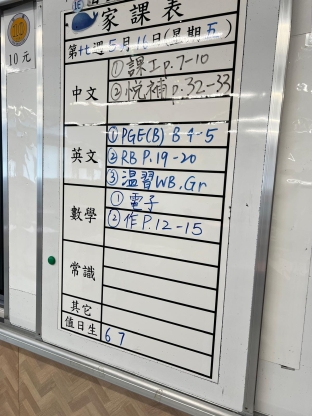 家課表
第十七週5月16日(星期五)
10元
中文
①課工p.7-10
②悅補p.32-33
英文
①PGE(B) B4-5
②RB P.19-20
③温習WB.Gr
數學
①電子
②作P.12-15
常識
其它
值日生
6 7